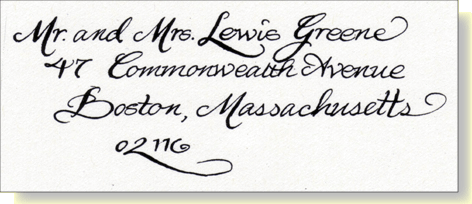 Mr. and Mrs. Lewis Greene
47 Commonwealth Avenue
Boston, Massachusetts
02116